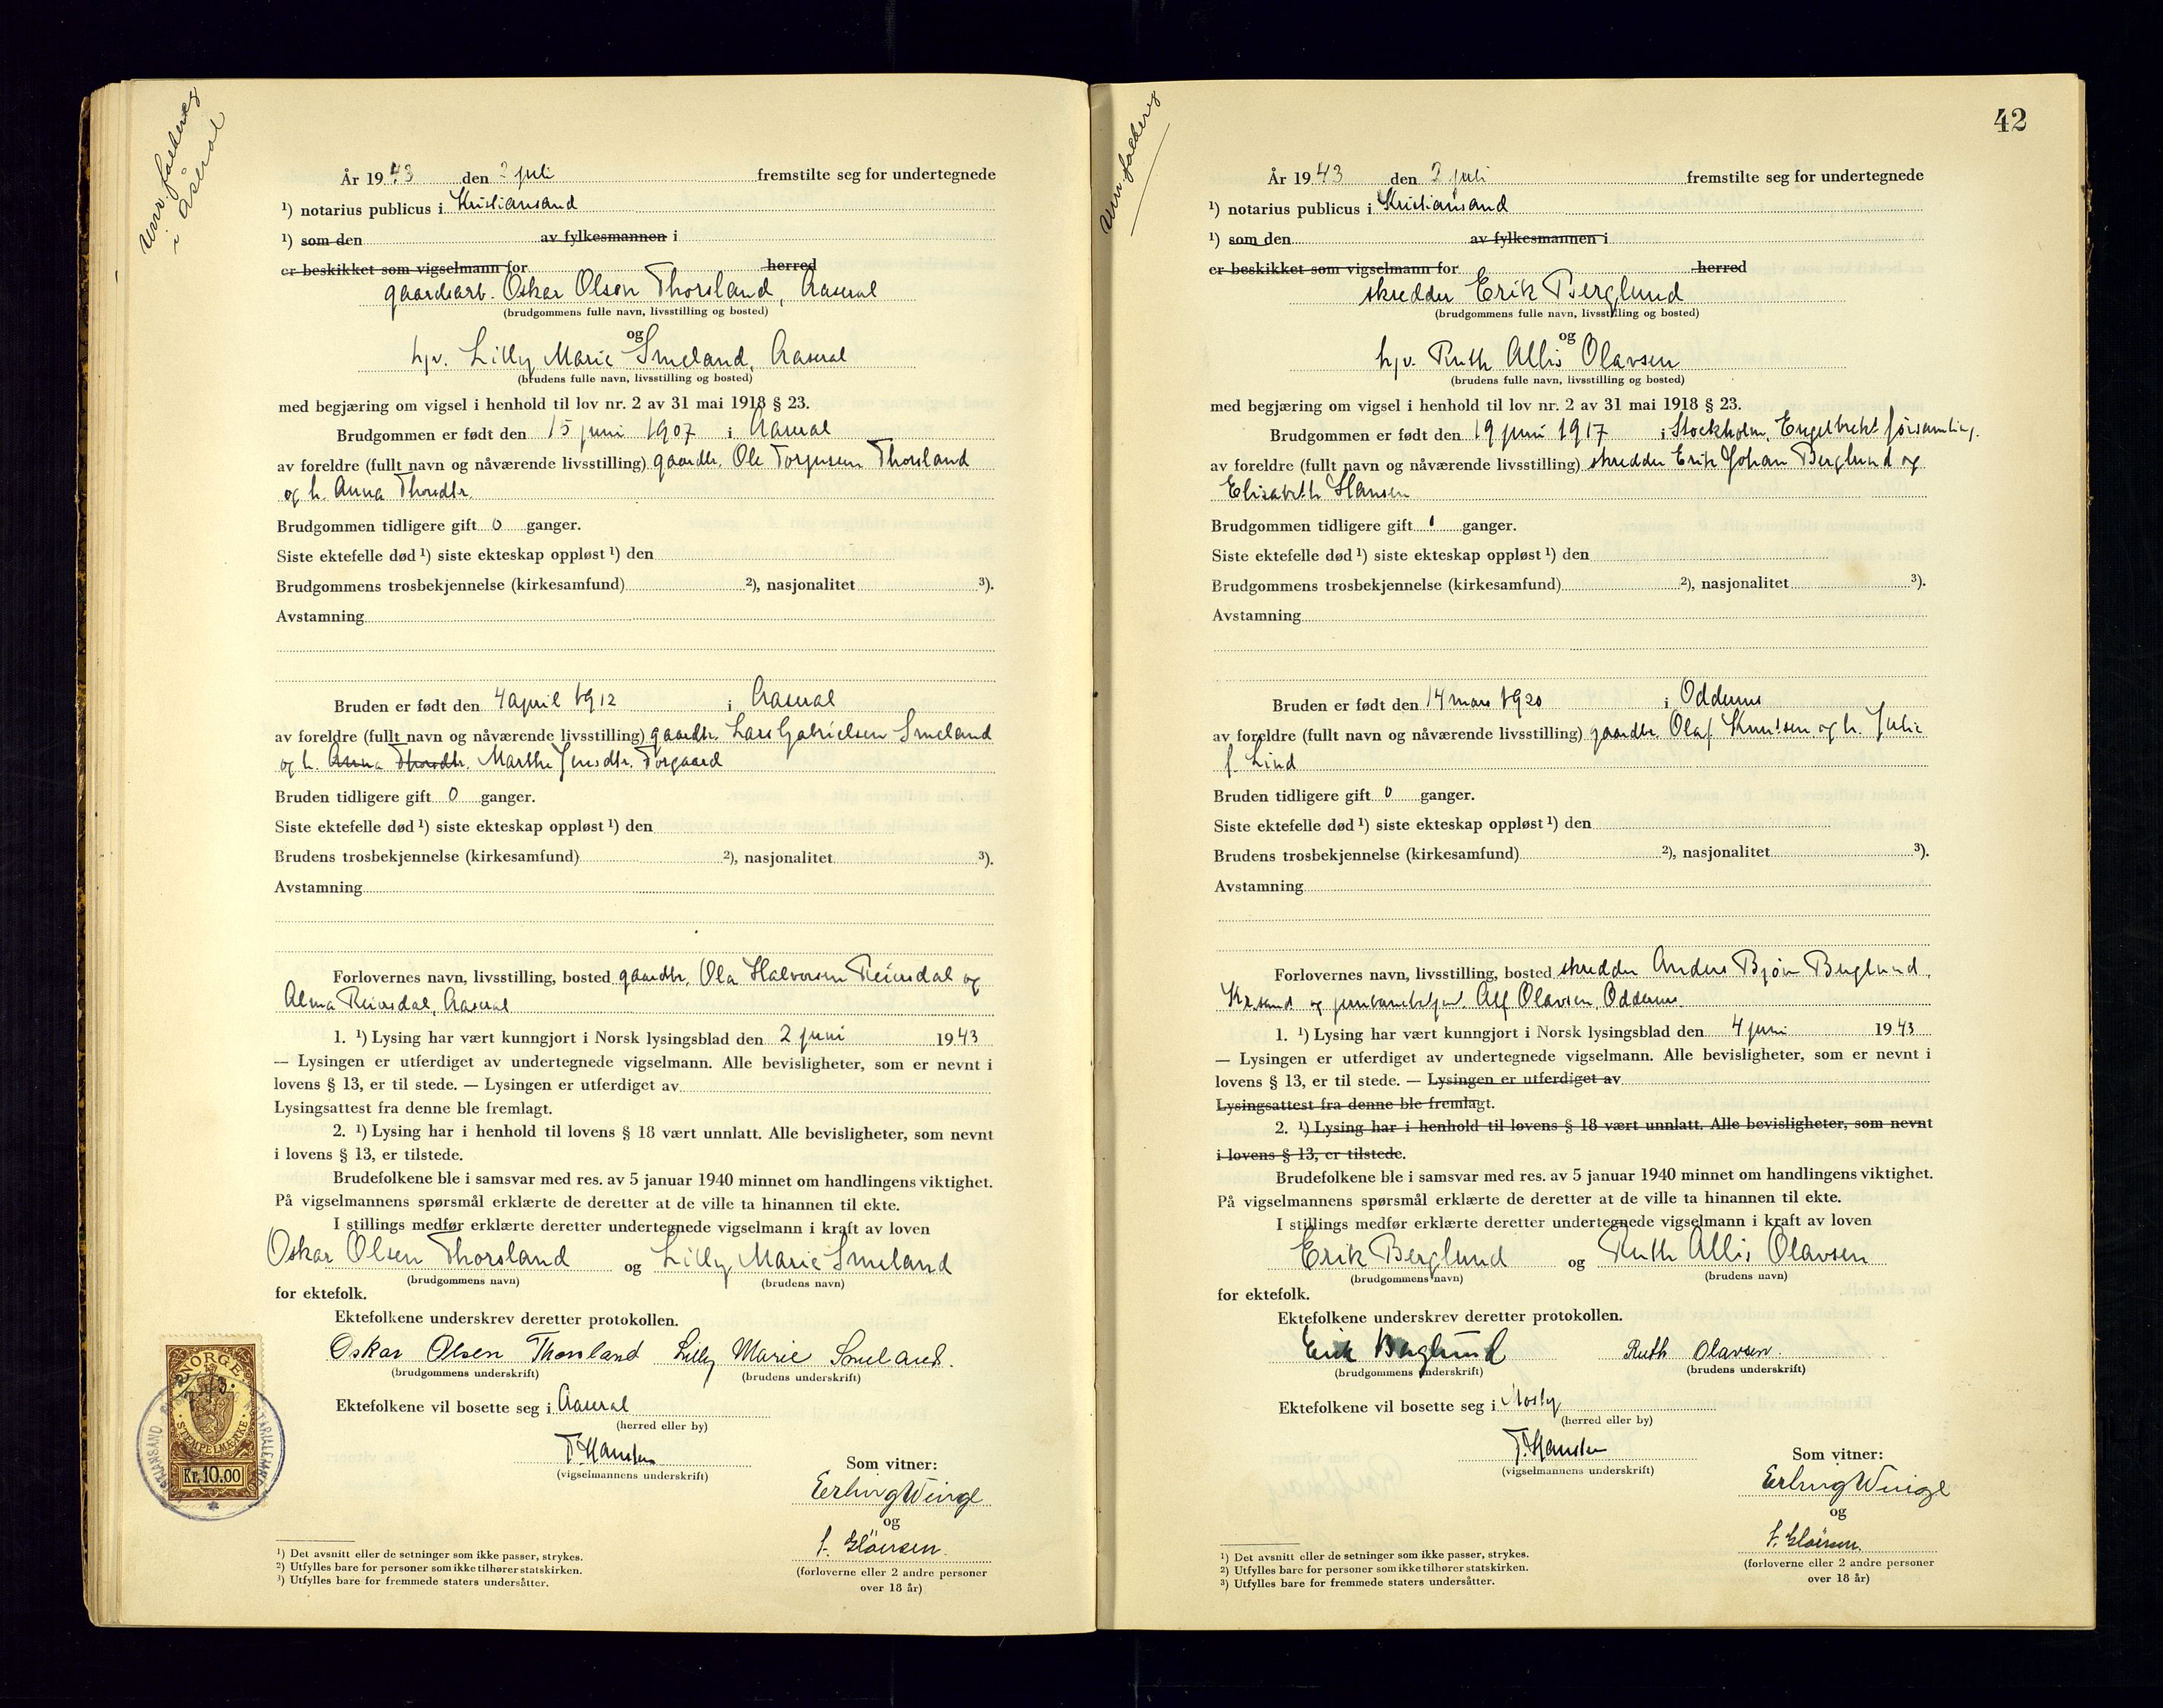 i Åseral
År 1943 den 2 juli fremstilte seg for undertegnede
¹) notarius publicus i Kristiansand
¹) som den av fylkesmannen i
er beskikket som vigselmann for herred
gaardsarb. Oskar Olsen Thorsland, Aaseral
(brudgommens fulle navn, livsstilling og bosted)
og
hjv. Lilly Marie Smeland, Aaseral
(brudens fulle navn, livsstilling og bosted)
med begjæring om vigsel i henhold til lov nr. 2 av 31 mai 1918 § 23.
Brudgommen er født den 15 juni 1907 i Aaseral
av foreldre (fullt navn og nåværende livsstilling) gaardbr. Ole Torjusen Thorsland
og h. Anna Thorsdtr.
Brudgommen tidligere gift 0 ganger.
Siste ektefelle død ¹) siste ekteskap oppløst ¹) den
Brudgommens trosbekjennelse (kirkesamfund) ²), nasjonalitet ³).
Avstamning
Bruden er født den 4 april 1912 i Aaseral
av foreldre (fullt navn og nåværende livsstilling) gaardbr. Lars Gabrielsen Smeland
og h. Anna Thorsdtr. Marthe Jensdtr. Torgaard
Bruden tidligere gift 0 ganger.
Siste ektefelle død ¹) siste ekteskap oppløst ¹) den
Brudens trosbekjennelse (kirkesamfund) ²), nasjonalitet ³).
Avstamning
Forlovernes navn, livsstilling, bosted gaardbr. Ola Halvorsen Reiersdal og
Alma Reiersdal, Aaseral
1. ¹) Lysing har vært kunngjort i Norsk lysingsblad den 2 juni 1943
— Lysingen er utferdiget av undertegnede vigselmann. Alle bevisligheter, som er nevnt i
lovens § 13, er til stede. — Lysingen er utferdiget av
Lysingsattest fra denne ble fremlagt.
2. ¹) Lysing har i henhold til lovens § 18 vært unnlatt. Alle bevisligheter, som nevnt
i lovens § 13, er tilstede.
Brudefolkene ble i samsvar med res. av 5 januar 1940 minnet om handlingens viktighet.
På vigselmannens spørsmål erklærte de deretter at de ville ta hinannen til ekte.
I stillings medfør erklærte deretter undertegnede vigselmann i kraft av loven
Oskar Olsen Thorsland og Lilly Marie Smeland
(brudgommens navn) (brudens navn)
for ektefolk.
Ektefolkene underskrev deretter protokollen.
Oskar Olsen Thorsland Lilly Marie Smeland.
(brudgommens underskrift) (brudens underskrift)
Ektefolkene vil bosette seg i Aaseral
(herred eller by)
T. Hansten
(vigselmannens underskrift)
Som vitner:
Erling Winge
og
(forloverne eller 2 andre personer
over 18 år)
NORGE
STEMPELMÆRKE
Kr. 10.00
¹) Det avsnitt eller de setninger som ikke passer, strykes.
²) Utfylles bare for personer som ikke tilhører statskirken.
³) Utfylles bare for fremmede staters undersåtter.
42
År 1943 den 2 juli fremstilte seg for undertegnede
¹) notarius publicus i Kristiansand
¹) som den av fylkesmannen i
er beskikket som vigselmann for herred
skredder Erik Berglund
(brudgommens fulle navn, livsstilling og bosted)
og
hjv. Ruth Allis Olavsen
(brudens fulle navn, livsstilling og bosted)
med begjæring om vigsel i henhold til lov nr. 2 av 31 mai 1918 § 23.
Brudgommen er født den 19 juni 1917 i Stockholm, Engelbrekt församling.
av foreldre (fullt navn og nåværende livsstilling) skredder Erik Johan Berglund og
Elisabeth Hansen
Brudgommen tidligere gift 1 ganger.
Siste ektefelle død ¹) siste ekteskap oppløst ¹) den
Brudgommens trosbekjennelse (kirkesamfund) ²), nasjonalitet ³).
Avstamning
Bruden er født den 14 mars 1920 i Oddernes
av foreldre (fullt navn og nåværende livsstilling) gaardbr. Olaf Knutsen og h. Julie
f. Lind
Bruden tidligere gift 0 ganger.
Siste ektefelle død ¹) siste ekteskap oppløst ¹) den
Brudens trosbekjennelse (kirkesamfund) ²), nasjonalitet ³).
Avstamning
Forlovernes navn, livsstilling, bosted skredder Anders Bjørn Berglund,
Kr.sand og jernbanebetjent Alf Olavsen, Oddernes
1. ¹) Lysing har vært kunngjort i Norsk lysingsblad den 4 juni 1943
— Lysingen er utferdiget av undertegnede vigselmann. Alle bevisligheter, som er nevnt i
lovens § 13, er til stede. — Lysingen er utferdiget av
Lysingsattest fra denne ble fremlagt.
2. ¹) Lysing har i henhold til lovens § 18 vært unnlatt. Alle bevisligheter, som nevnt
i lovens § 13, er tilstede.
Brudefolkene ble i samsvar med res. av 5 januar 1940 minnet om handlingens viktighet.
På vigselmannens spørsmål erklærte de deretter at de ville ta hinannen til ekte.
I stillings medfør erklærte deretter undertegnede vigselmann i kraft av loven
Erik Berglund og Ruth Allis Olavsen
(brudgommens navn) (brudens navn)
for ektefolk.
Ektefolkene underskrev deretter protokollen.
Erik Berglund Ruth Olavsen.
(brudgommens underskrift) (brudens underskrift)
Ektefolkene vil bosette seg i Mosby
(herred eller by)
T. Hansten
(vigselmannens underskrift)
Som vitner:
Erling Winge
og
(forloverne eller 2 andre personer
over 18 år)
¹) Det avsnitt eller de setninger som ikke passer, strykes.
²) Utfylles bare for personer som ikke tilhører statskirken.
³) Utfylles bare for fremmede staters undersåtter.